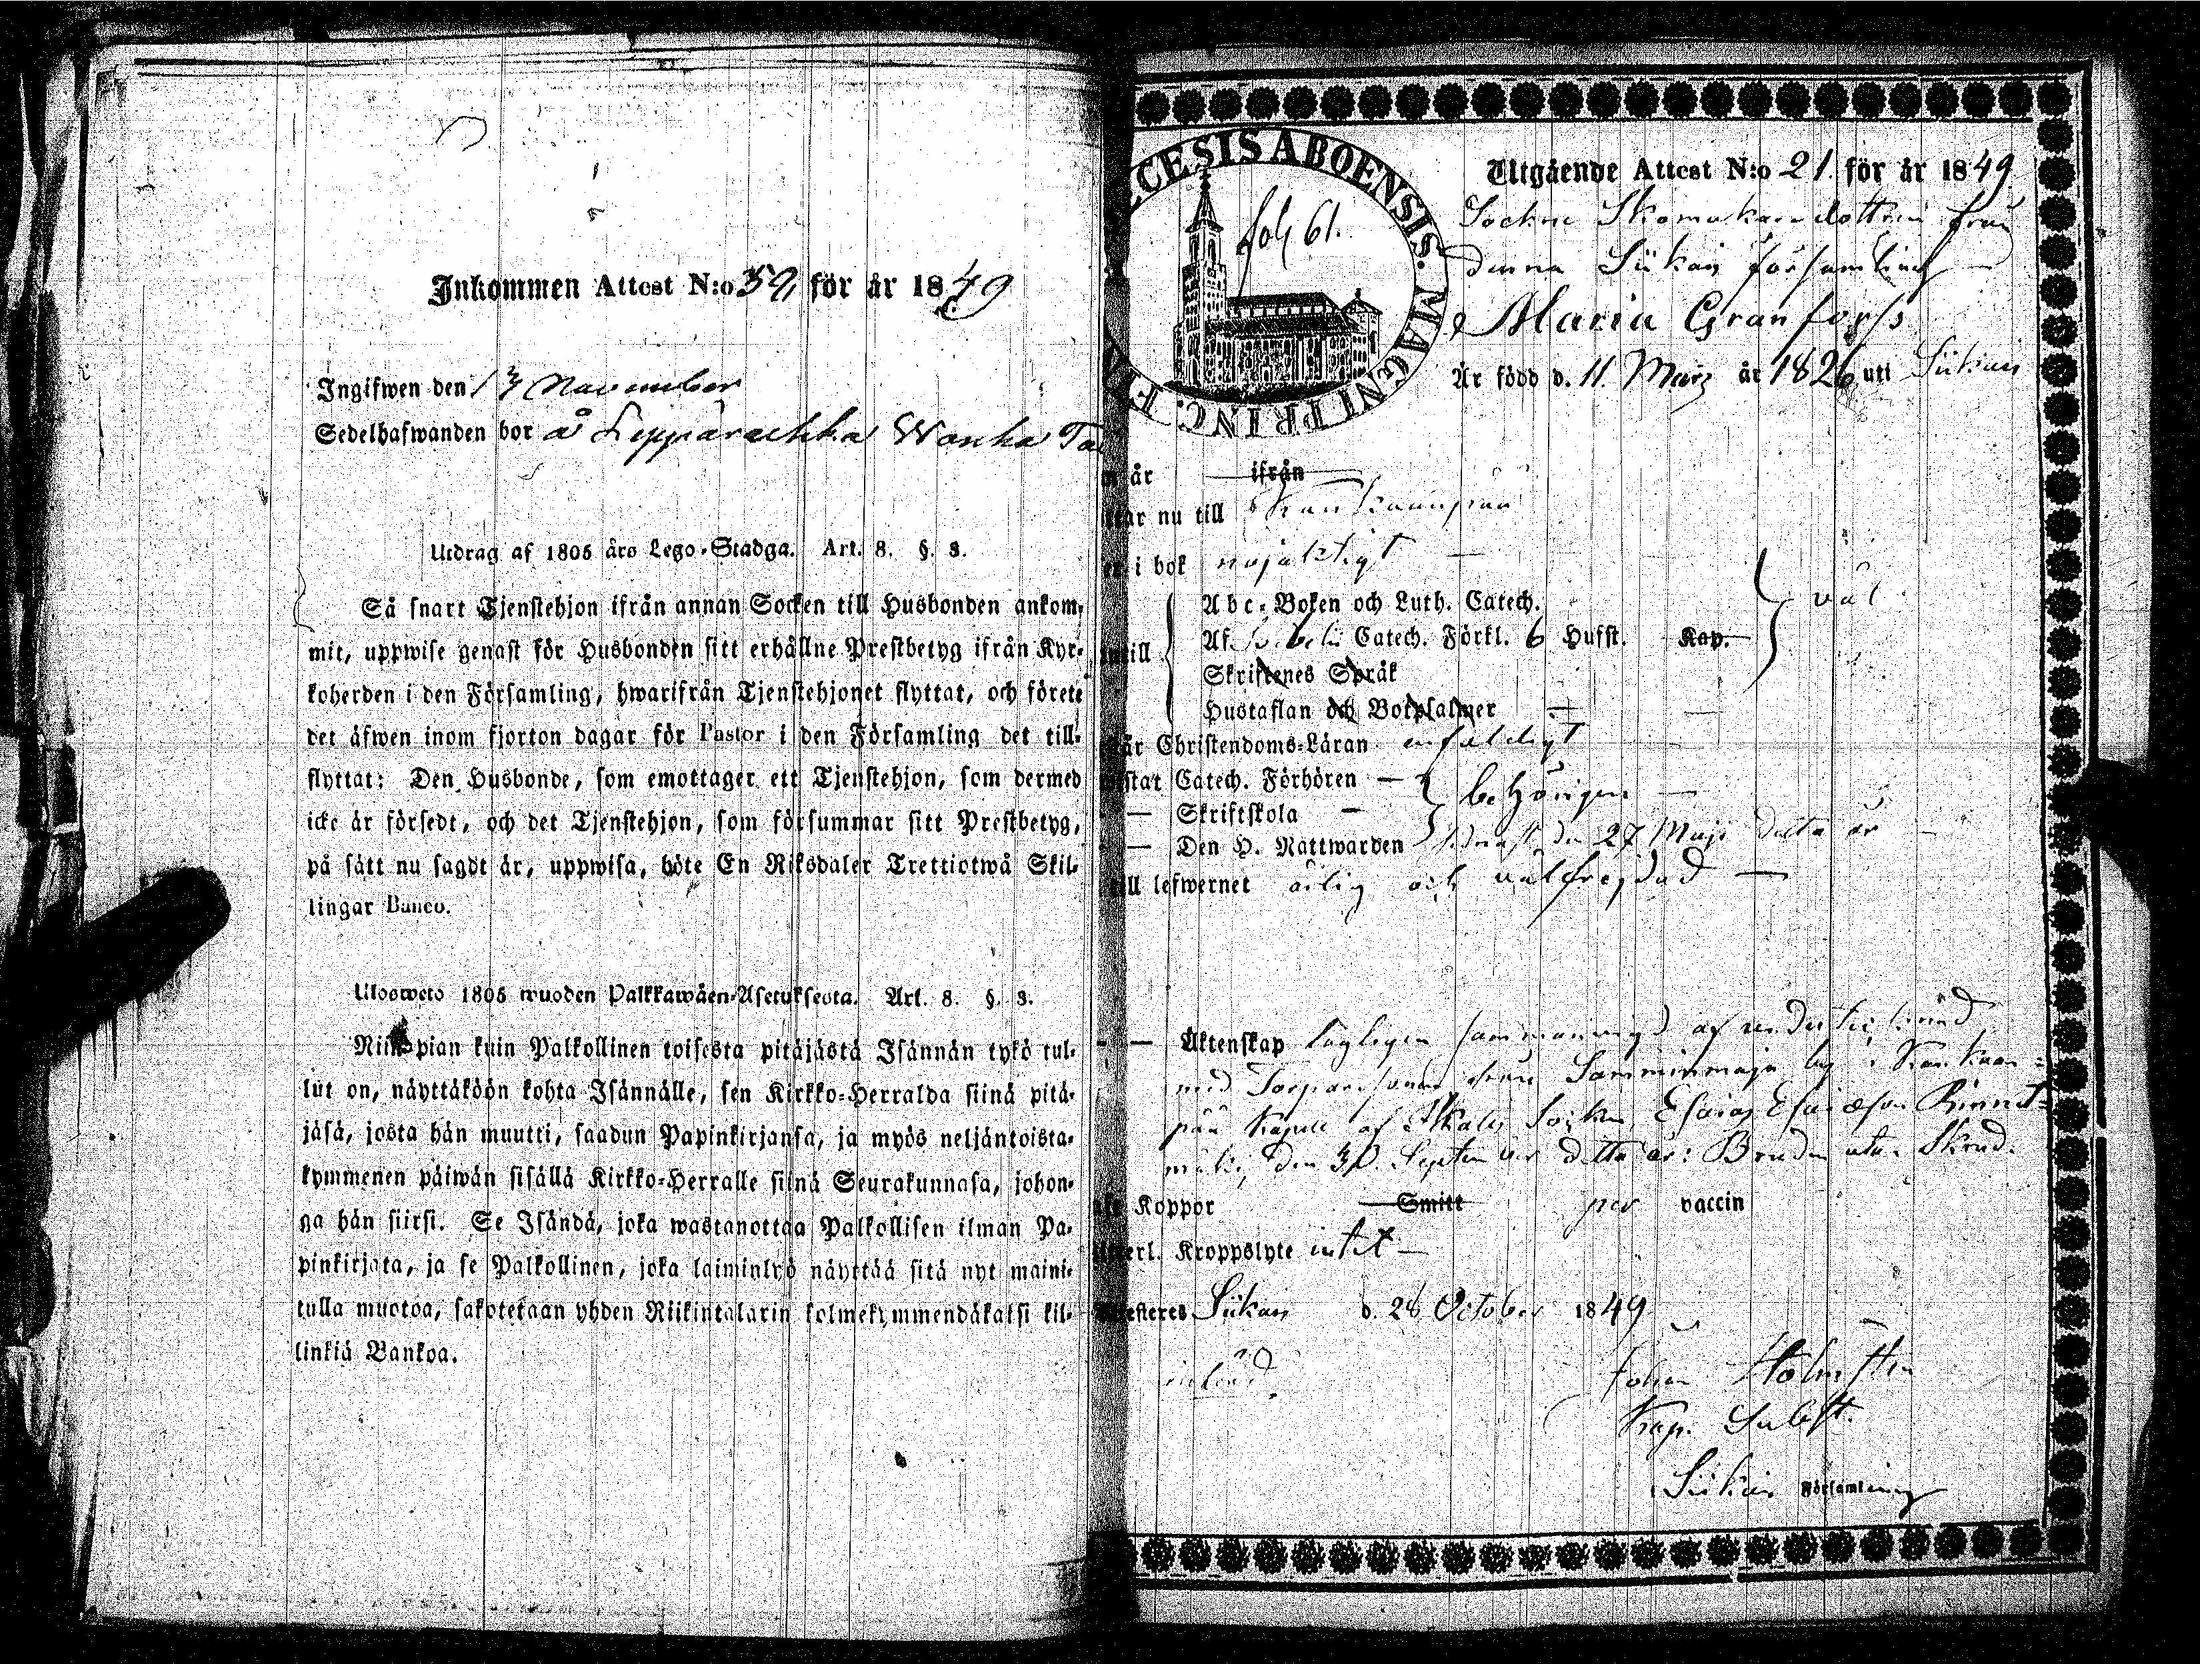 Inkommen Attest N:o 59, för år 1849
Ingifwen den 13 November
Sedelhafwanden bor å Leppäruhka Wanha
Utdrag af 1805 års Lego-Stadga. Art. 8. §. 3.
Så snart Tjenstehjon ifrån annan Socken till Husbonden ankom-
mit, uppwise genast för Husbonden sitt erhållne Prestbetyg ifrån Kyr-
koherden i den Församling, hwarifrån Tjenstehjonet flyttat, och förete
det äfwen inom fjorton dagar för Pastor i den Församling det till-
flyttat: Den Husbonde, som emottager ett Tjenstehjon, som dermed
icke är försedt, och det Tjenstehjon, som försummar sitt Prestbetyg,
på sätt nu sagdt är, uppwisa, böte En Riksdaler Trettiotwå Skil-
lingar Banco.
Ulosweto 1805 wuoden Palkkawäen-Asetuksesta. Art. 8. §. 3.
Niinpian kuin Palkollinen toisesta pitäjästä Isännän tykö tul-
lut on, näyttäköön kohta Isännälle, sen Kirkko-Herralda siinä pitä-
jäsä, josta hän muutti, saadun Papinkirjansa, ja myös neljäntoista-
kymmenen päiwän sisällä Kirkko-Herralle siinä Seurakunnasa, johon-
ga hän siirsi. Se Isändä, joka wastanottaa Palkollisen ilman Pa-
pinkirjata, ja se Palkollinen, joka laiminlyö näyttää sitä nyt maini-
tulla muotoa, sakotetaan yhden Riikintalarin kolmekymmendäkaksi kil-
linkiä Bankoa.
CESIS ABOENSIS. MAGNI PRINC. F
fol 61.
Utgående Attest N:o 21. för år 1849
Sockne Skomakaredottren från
denna Siikais församling
Maria Granforss
Är född d. 11. Martz år 1826 uti Siikais
är ifrån
nu till Kankaanpää
i bok nöjaktigt
Abc-Boken och Luth. Catech.
Af Catech. Förkl. 6 Hufst. Kap. väl
Skriftenes Språk
Hustaflan och Botpsalmer
Christendoms-Läran enfaldigt
Catech. Förhören
Skriftskola behörigen
Den H. Nattwarden sednast den 27 Maji detta år
till lefwernet ärlig och wälfrejdad
Äktenskap lagligen sammanvigd af
med Torparesonen från Samminmaja by i Kankaan-
pää Kapell af Ikalis Socken, Esaias Esaiæson Rinnet-
mäki, den 30. September detta år: Bruden utan Skrud.
Koppor Smitt per vaccin
Kroppslyte intet
Siikais d. 26 October 1849
Johan Holmsten
Kap. Subst.
Siikais Församling